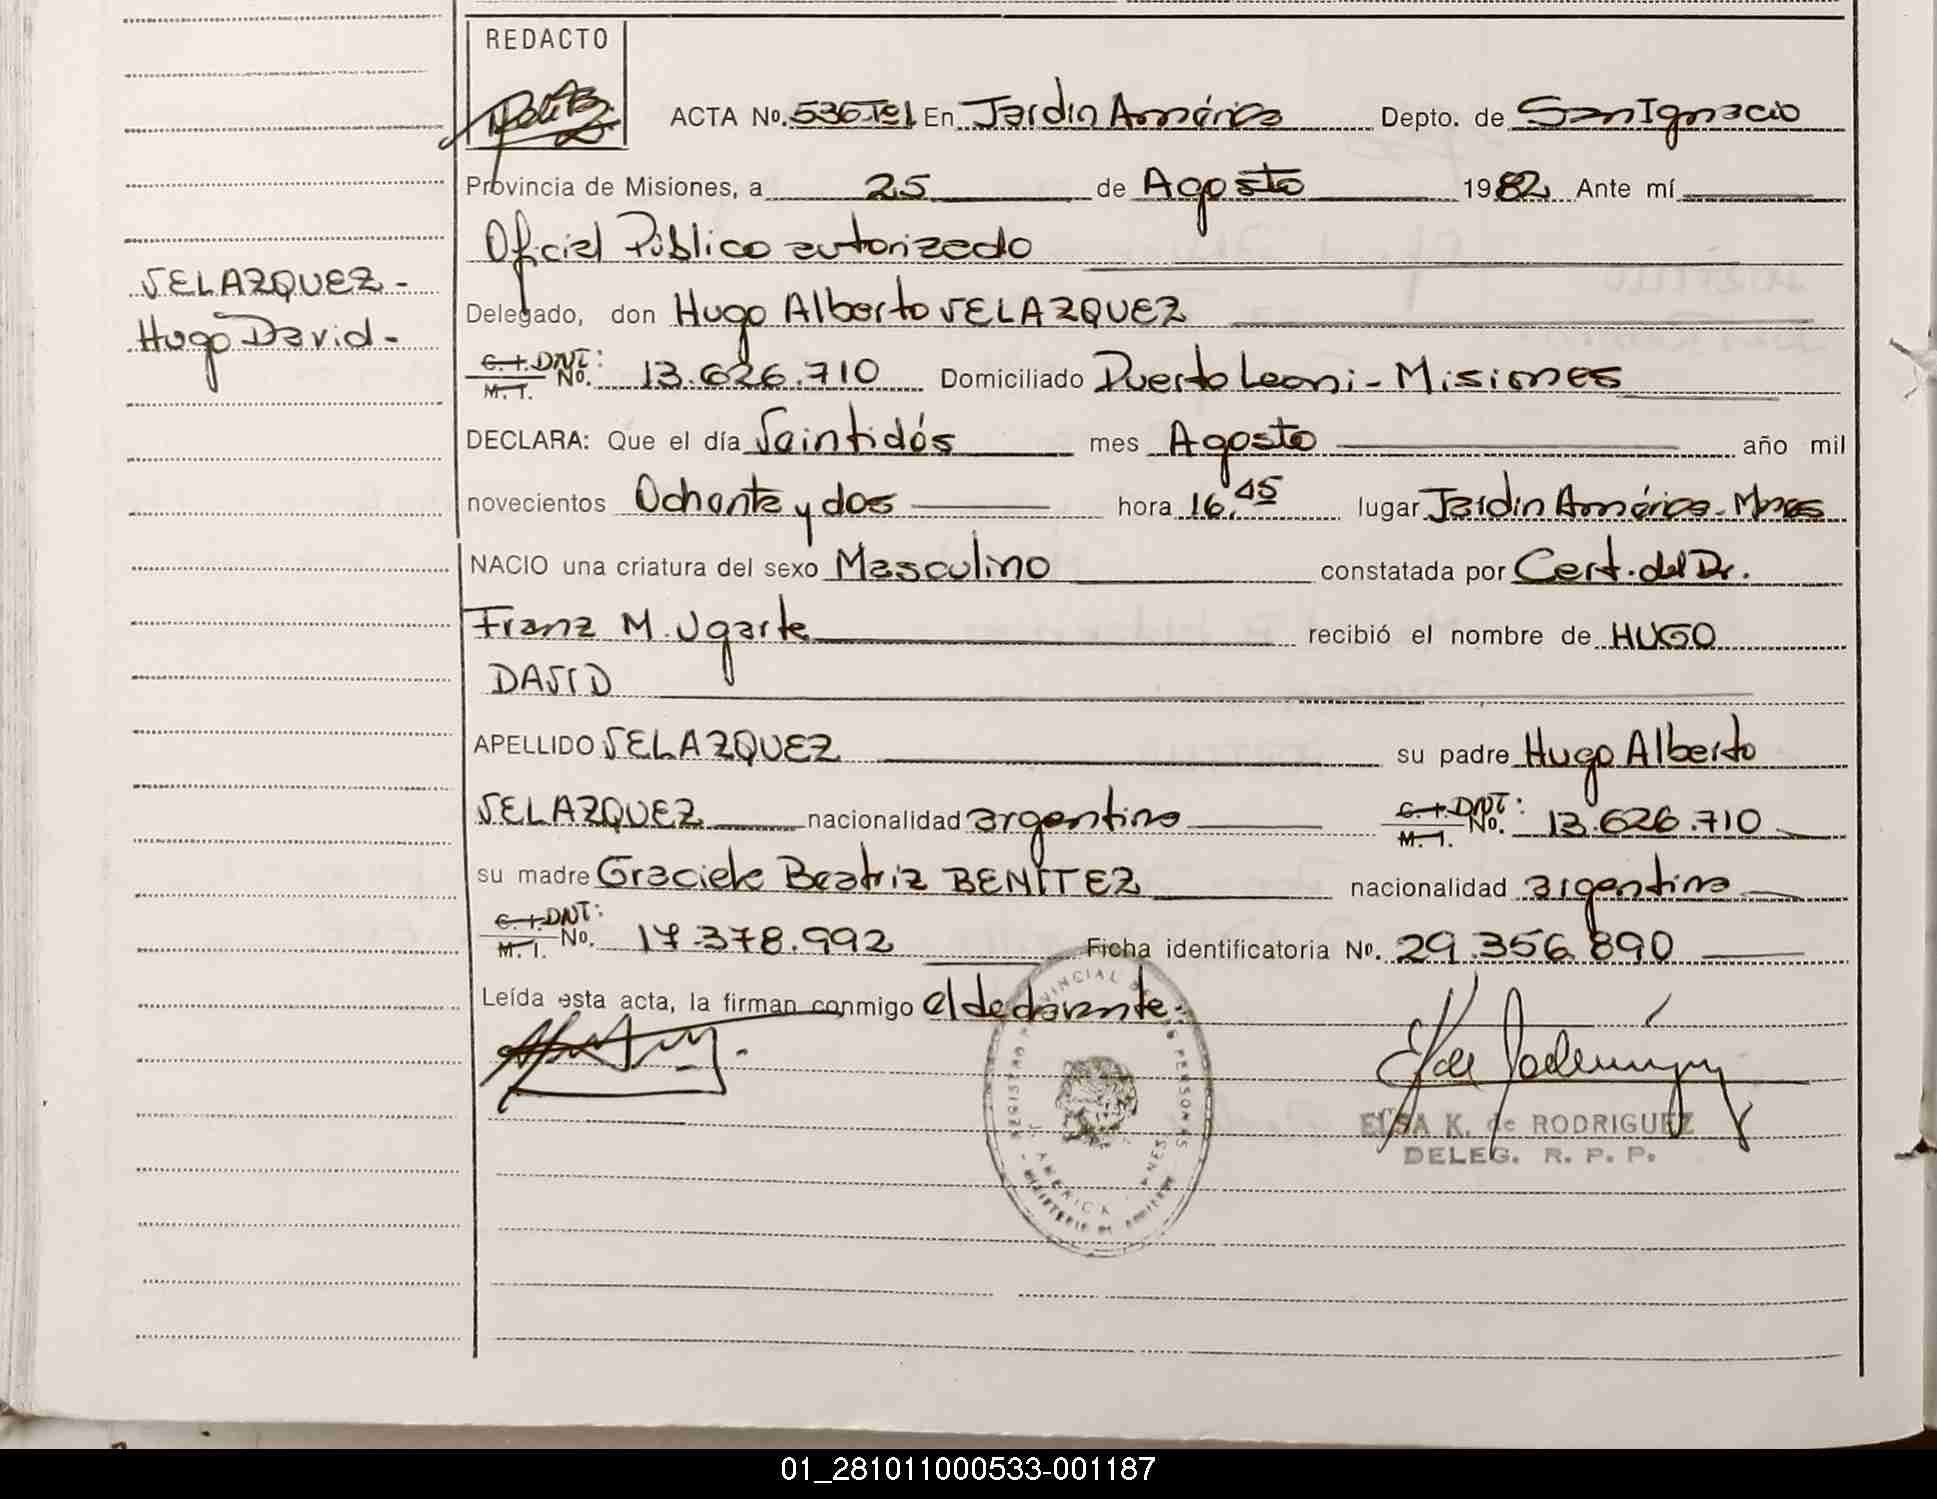 REDACTO
ACTA No. 536 Tº1 En Jardín América Depto. de San Ignacio
Provincia de Misiones, a 25 de Agosto 1982 Ante mí
Oficial Público autorizado
VELAZQUEZ-
Hugo David-
Delegado, don Hugo Alberto VELAZQUEZ
C. I. DNI: M. I. No. 13.626.710 Domiciliado Puerto Leoni - Misiones
DECLARA: Que el día Veintidós mes Agosto año mil
novecientos Ochenta y dos hora 16,45 lugar Jardín América - Mnes
NACIO una criatura del sexo Masculino constatada por Cert. del Dr.
Franz M. Ugarte recibió el nombre de HUGO
DAVID
APELLIDO VELAZQUEZ su padre Hugo Alberto
VELAZQUEZ nacionalidad argentina C. I. DNI: M. I. No. 13.626.710
su madre Graciela Beatriz BENÍTEZ nacionalidad argentina
C. I. DNI: M. I. No. 17.378.992 Ficha identificatoria No. 29.356.890
Leída esta acta, la firman conmigo el declarante.
REGISTRO PROVINCIAL DE LAS PERSONAS
ELSA K. de RODRIGUEZ
DELEG. R. P. P.
01_281011000533-001187